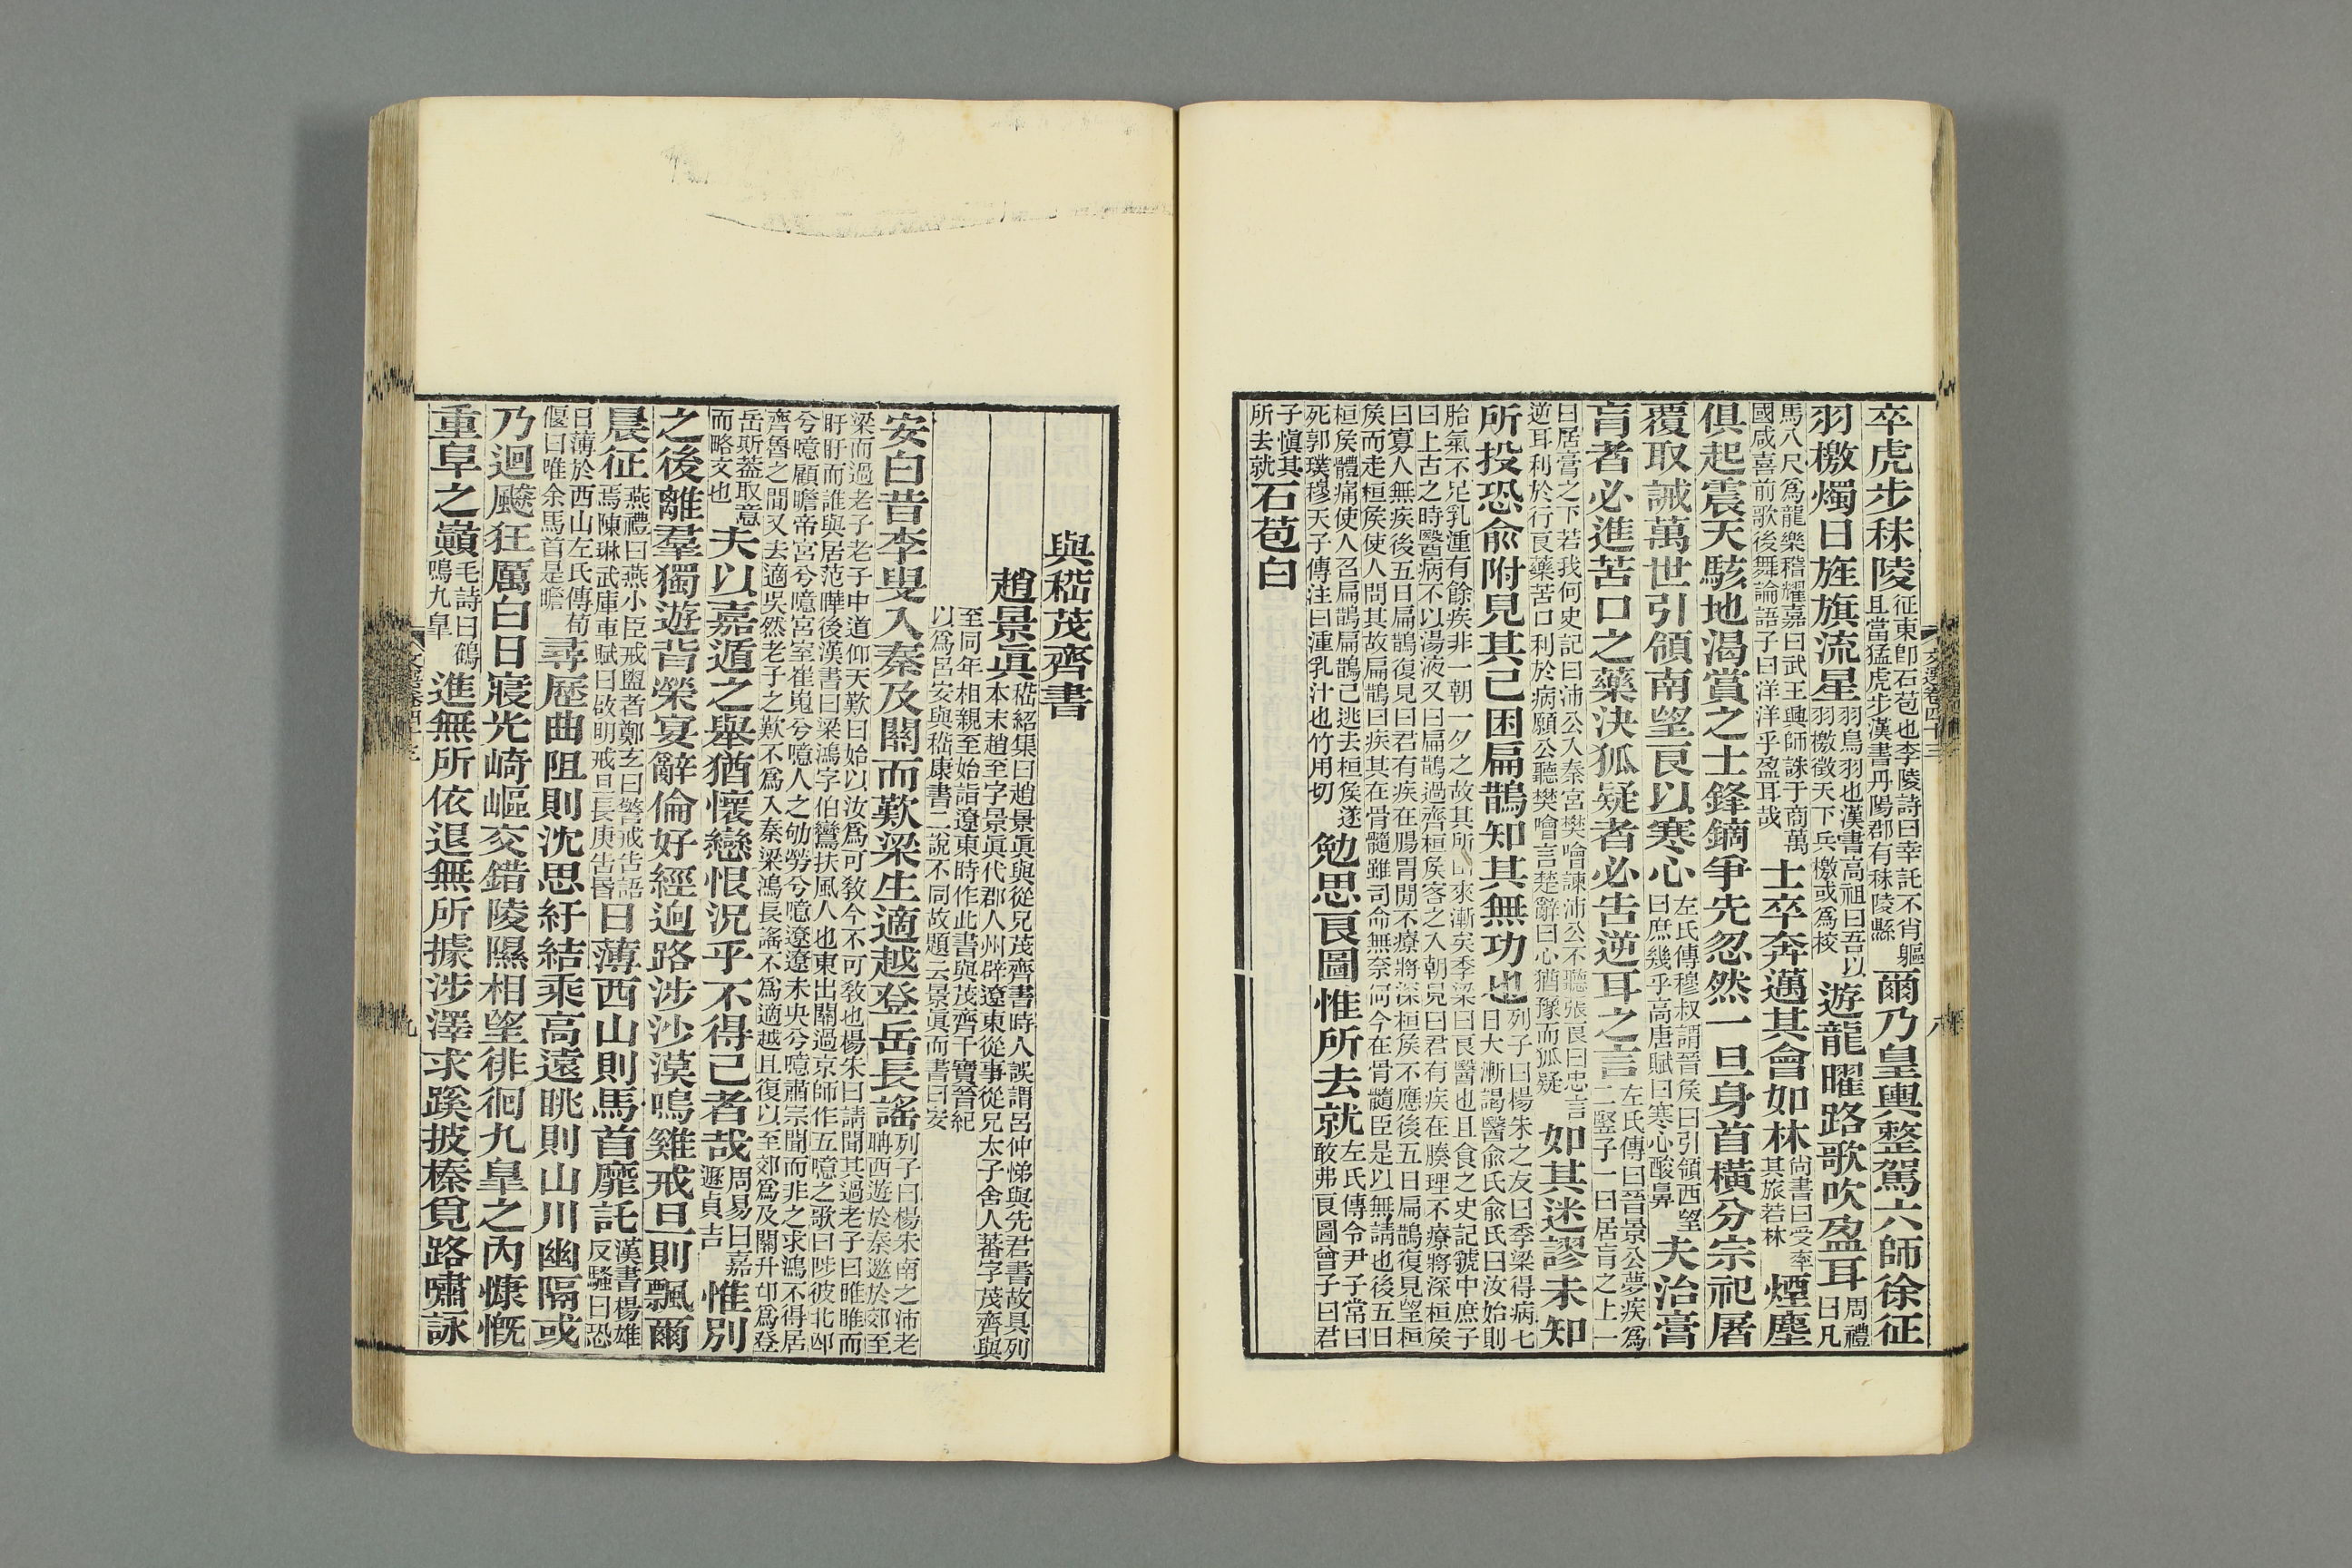 卒虎步秣陵
征東卽石苞也李陵詩曰幸託不肖軀
且當猛虎步漢書丹陽郡有秣陵縣
爾乃皇輿整駕六師徐征
羽檄燭日旌旗流星
羽鳥羽也漢書高祖曰吾以
羽檄徵天下兵檄或爲校
遊龍曜路歌吹盈耳
周禮
曰凡
馬八尺爲龍樂稽耀嘉曰武王興師誅于商萬
國咸喜前歌後舞論語子曰洋洋乎盈耳哉
士卒奔邁其會如林
尙書曰受率
其旅若林
煙塵
俱起震天駭地渴賞之士鋒鏑爭先忽然一旦身首橫分宗祀屠
覆取誡萬世引領南望良以寒心
左氏傳穆叔謂晉侯曰引領西望
曰庶幾乎高唐賦曰寒心酸鼻
夫治膏
肓者必進苦口之藥決狐疑者必告逆耳之言
左氏傳曰晉景公夢疾爲
二豎子一曰居肓之上一
曰居膏之下若我何史記曰沛公入秦宮樊噲諫沛公不聽張良曰忠言
逆耳利於行良藥苦口利於病願公聽樊噲言楚辭曰心猶豫而狐疑
如其迷謬未知
所投恐俞附見其已困扁鵲知其無功也
列子曰楊朱之友曰季梁得病七
日大漸謁醫俞氏俞氏曰汝始則
胎氣不足乳湩有餘疾非一朝一夕之故其所由來漸矣季梁曰良醫也且食之史記虢中庶子
曰上古之時醫病不以湯液又曰扁鵲過齊桓侯客之入朝見曰君有疾在腠理不療將深桓侯
曰寡人無疾後五日扁鵲復見曰君有疾在腸胃閒不療將深桓侯不應後五日扁鵲復見望桓
侯而走桓侯使人問其故扁鵲曰疾其在骨髓雖司命無奈何今在骨髓臣是以無請也後五日
桓侯體痛使人召扁鵲扁鵲已逃去桓侯遂
死郭璞穆天子傳注曰湩乳汁也竹用切
勉思良圖惟所去就
左氏傳令尹子常曰
敢弗良圖曾子曰君
子愼其
所去就
石苞白
文選卷四十三
八
與嵇茂齊書
趙景眞
嵇紹集曰趙景眞與從兄茂齊書時人誤謂呂仲悌與先君書故具列
本末趙至字景眞代郡人州辟遼東從事從兄太子舍人蕃字茂齊與
至同年相親至始詣遼東時作此書與茂齊干寶晉紀
以爲呂安與嵇康書二說不同故題云景眞而書曰安
安白昔李叟入秦及關而歎梁生適越登岳長謠
列子曰楊朱南之沛老
聃西遊於秦邀於郊至
梁而過老子老子中道仰天歎曰始以汝爲可敎今不可敎也楊朱曰請聞其過老子曰睢睢而
盱盱而誰與居范曄後漢書曰梁鴻字伯鸞扶風人也東出關過京師作五噫之歌曰陟彼北邙
兮噫顧瞻帝宮兮噫宮室崔嵬兮噫人之劬勞兮噫遼遼未央兮噫肅宗聞而非之求鴻不得居
齊魯之閒又去適吳然老子之歎不爲入秦梁鴻長謠不爲適越且復以至郊爲及關升邙爲登
岳斯葢取意
而略文也
夫以嘉遁之舉猶懷戀恨況乎不得已者哉
周易曰嘉
遯貞吉
惟別
之後離羣獨遊背榮宴辭倫好經迥路涉沙漠鳴雞戒旦則飄爾
晨征
燕禮曰燕小臣戒盥者鄭玄曰警戒告語
焉陳琳武庫車賦曰啟明戒旦長庚告昬
日薄西山則馬首靡託
漢書楊雄
反騷曰恐
日薄於西山左氏傳荀
偃曰唯余馬首是瞻
尋歷曲阻則沈思紆結乘高遠眺則山川幽隔或
乃迴飈狂厲白日寢光崎嶇交錯陵隰相望徘徊九皐之內慷慨
重阜之巔
毛詩曰鶴
鳴九皐
進無所依退無所據涉澤求蹊披榛覓路嘯詠
九